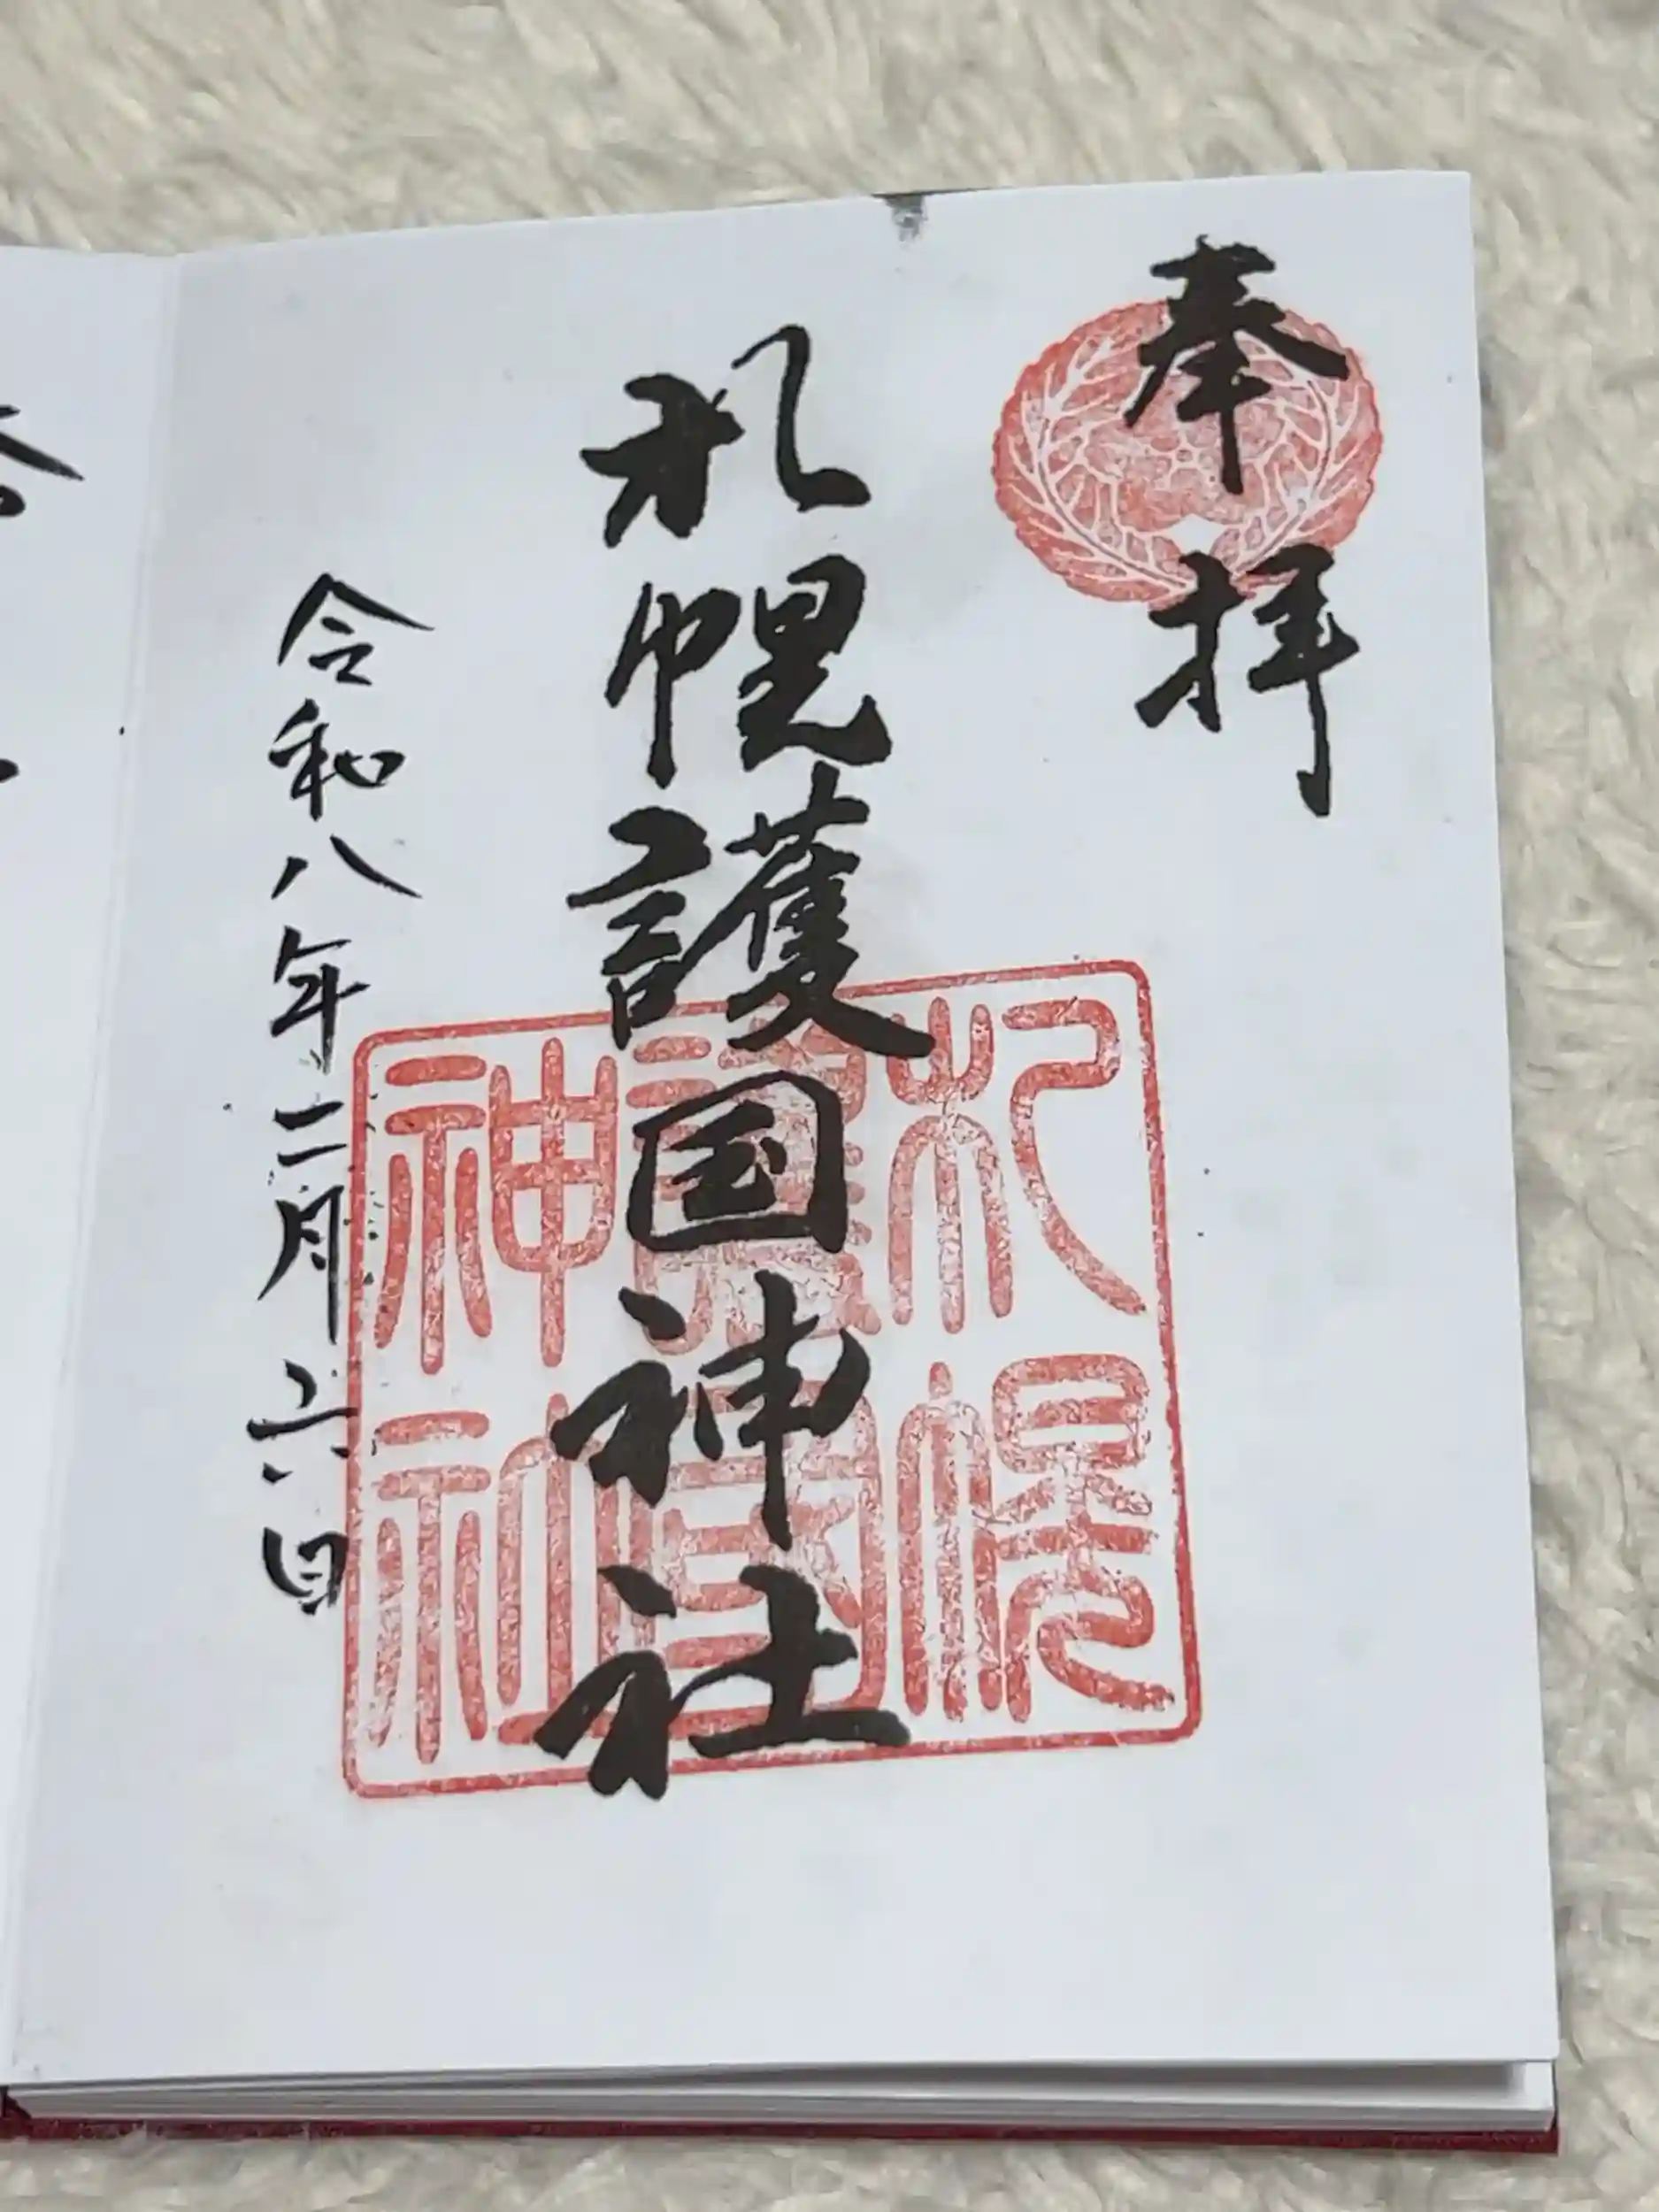 奉拝
札幌護国神社
札幌
護国
神社
令和八年二月六日